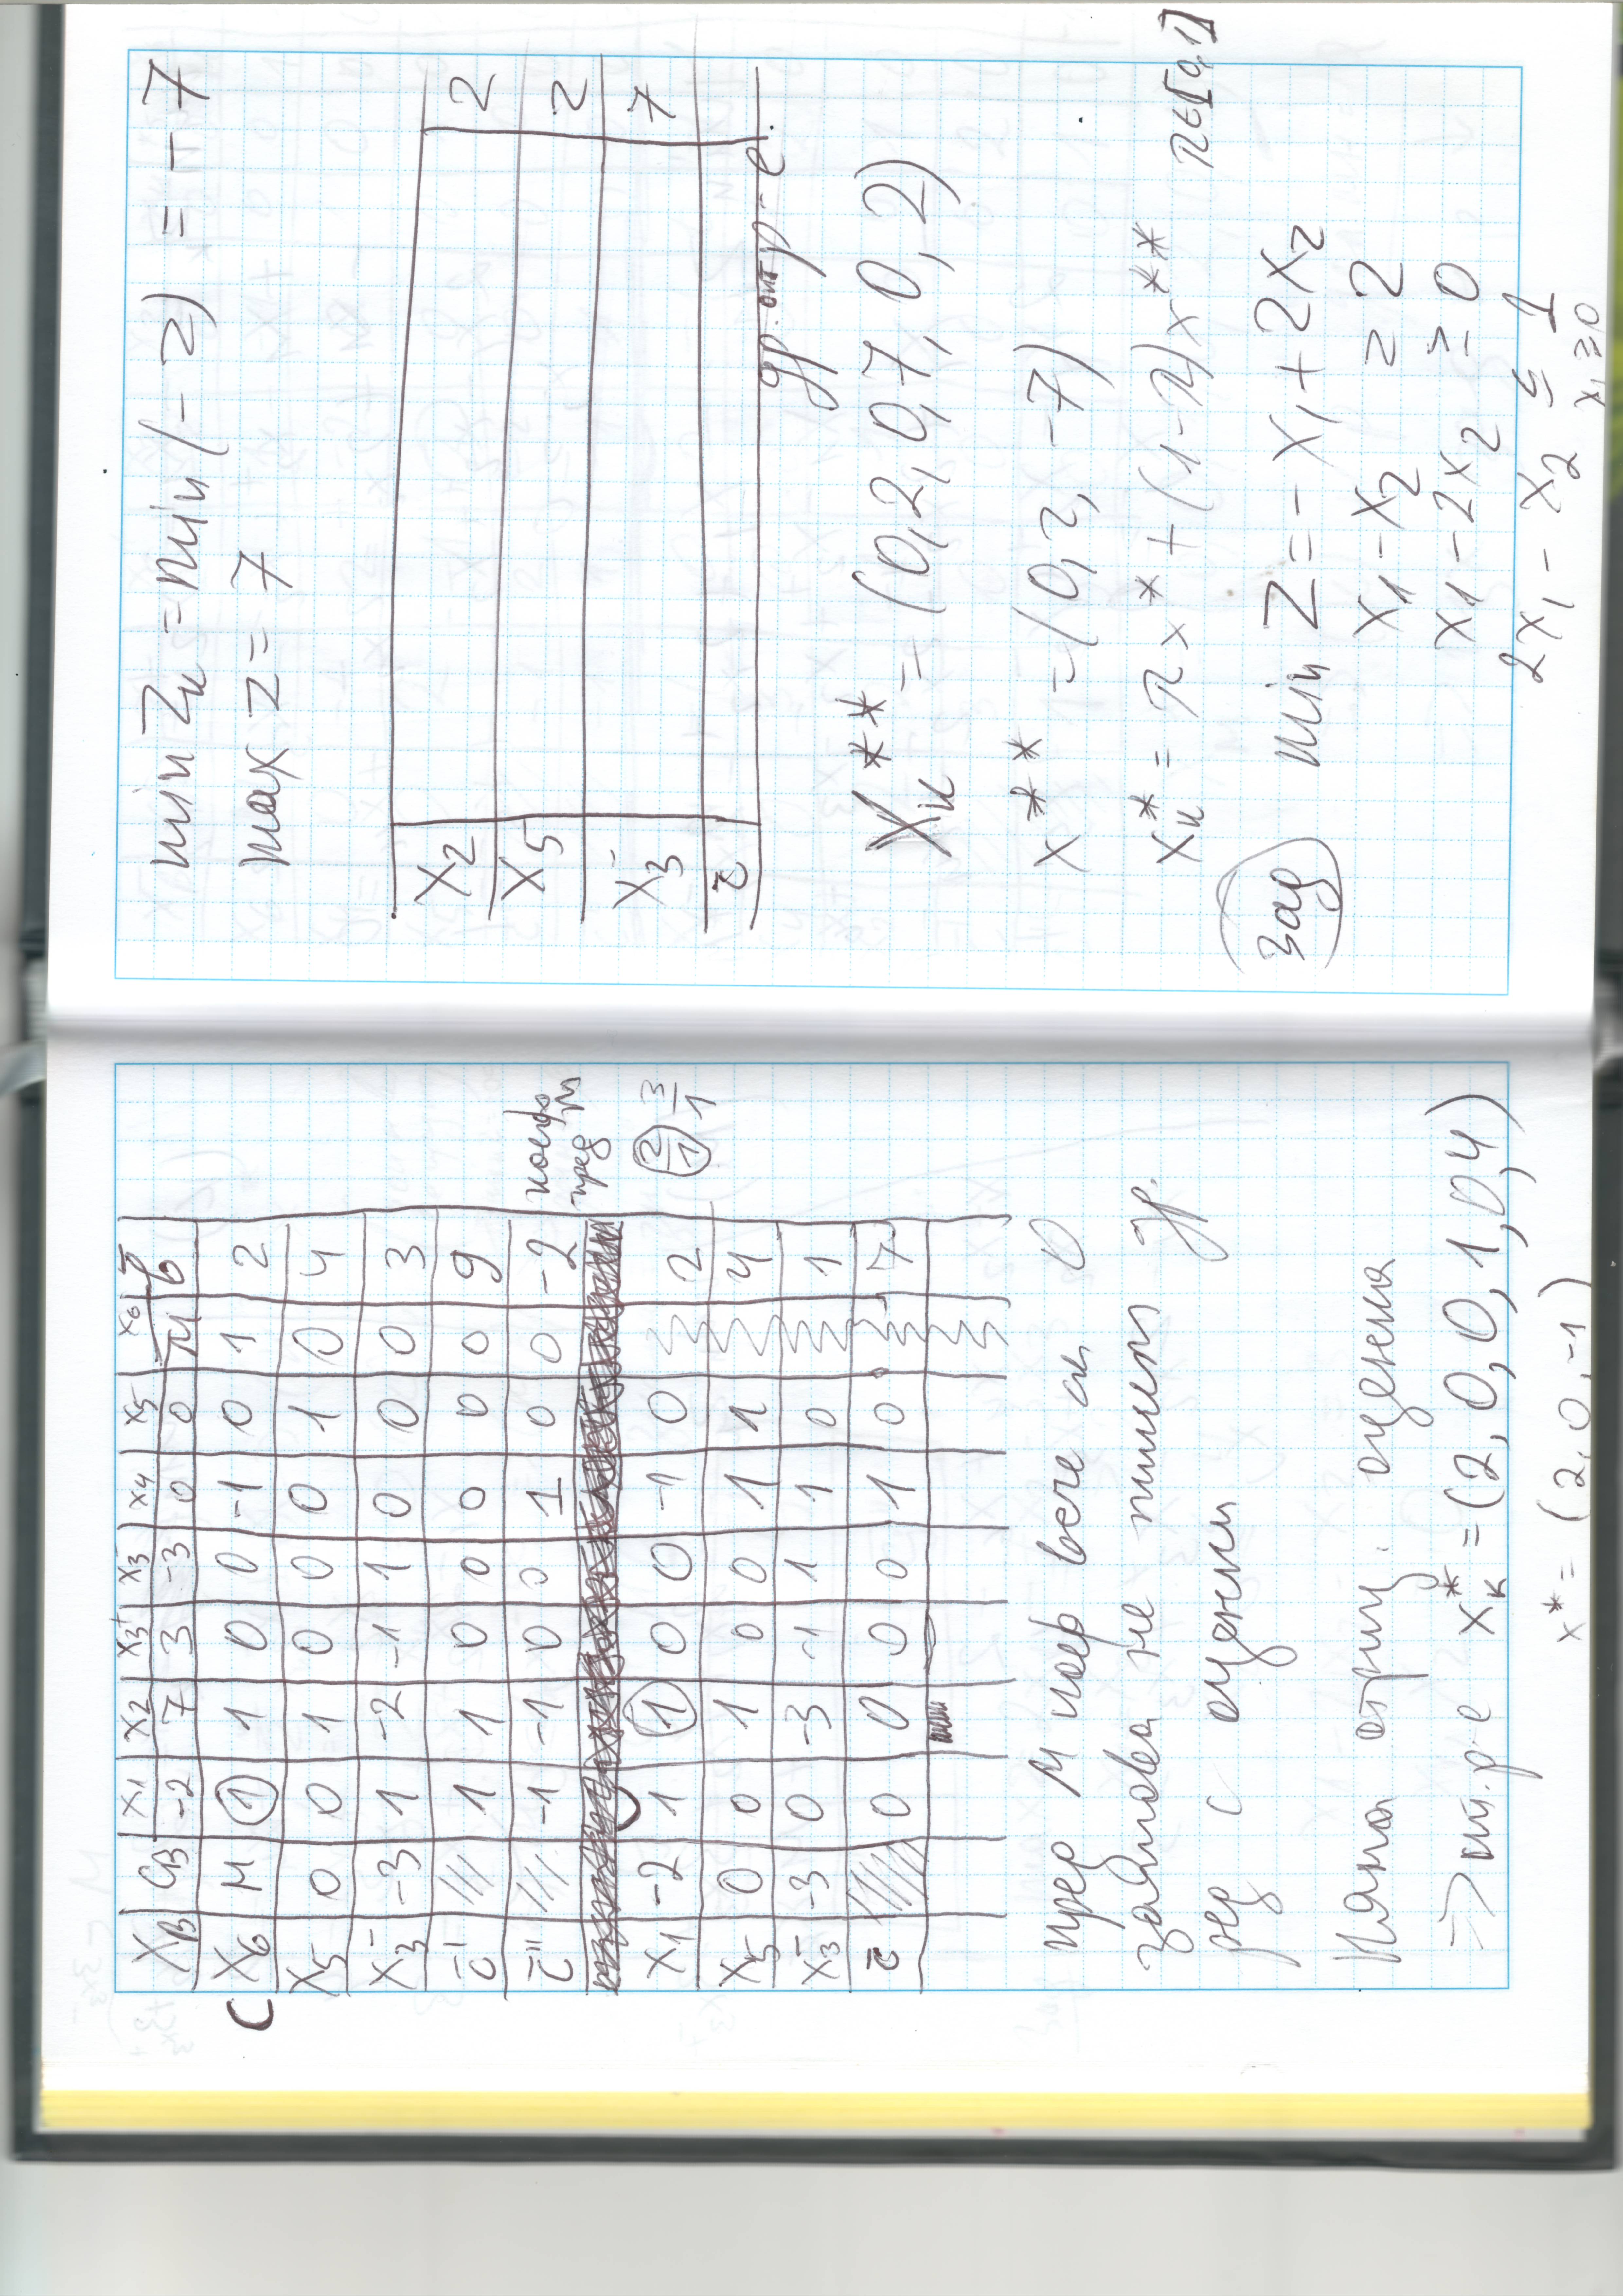 X_B C_B x1 x2 x3+ x3- x4 x5 x6 b̄
-2 7 3 -3 0 0 M
X6 M 1 1 0 0 -1 0 1 2
X5 0 0 1 0 0 0 1 0 4
X3- -3 1 -2 -1 1 0 0 0 3
c̄' 1 1 0 0 0 0 0 9
c̄'' -1 -1 0 0 1 0 0 -2
коеф
пред M
X1 -2 1 1 0 0 -1 0 2 2/1
X5 0 0 1 0 0 1 1 4 3/1
X3- -3 0 -3 -1 1 1 0 1
c̄ 0 0 0 0 1 0 7
пред M коеф вече са 0
затова не пишем
ред с оценки
Няма отриц. оценка
=> опт.р-е x_к* = (2, 0, 0, 1, 0, 4)
x* = (2, 0, -1)
min Z_к = min (-z) = -7
max z = 7
X2 2
X5 2
X3- 7
c̄
др. опт р-е.
X_к** = (0, 2, 0, 7, 0, 2)
x** = (0, 2, -7)
x_к* = λx* + (1-λ)x** λ∈[0,1]
Зад min Z = -x1 + 2x2
x1 - x2 ≥ 2
x1 - 2x2 ≥ 0
2x1 - x2 ≤ 1
x1 ≥ 0